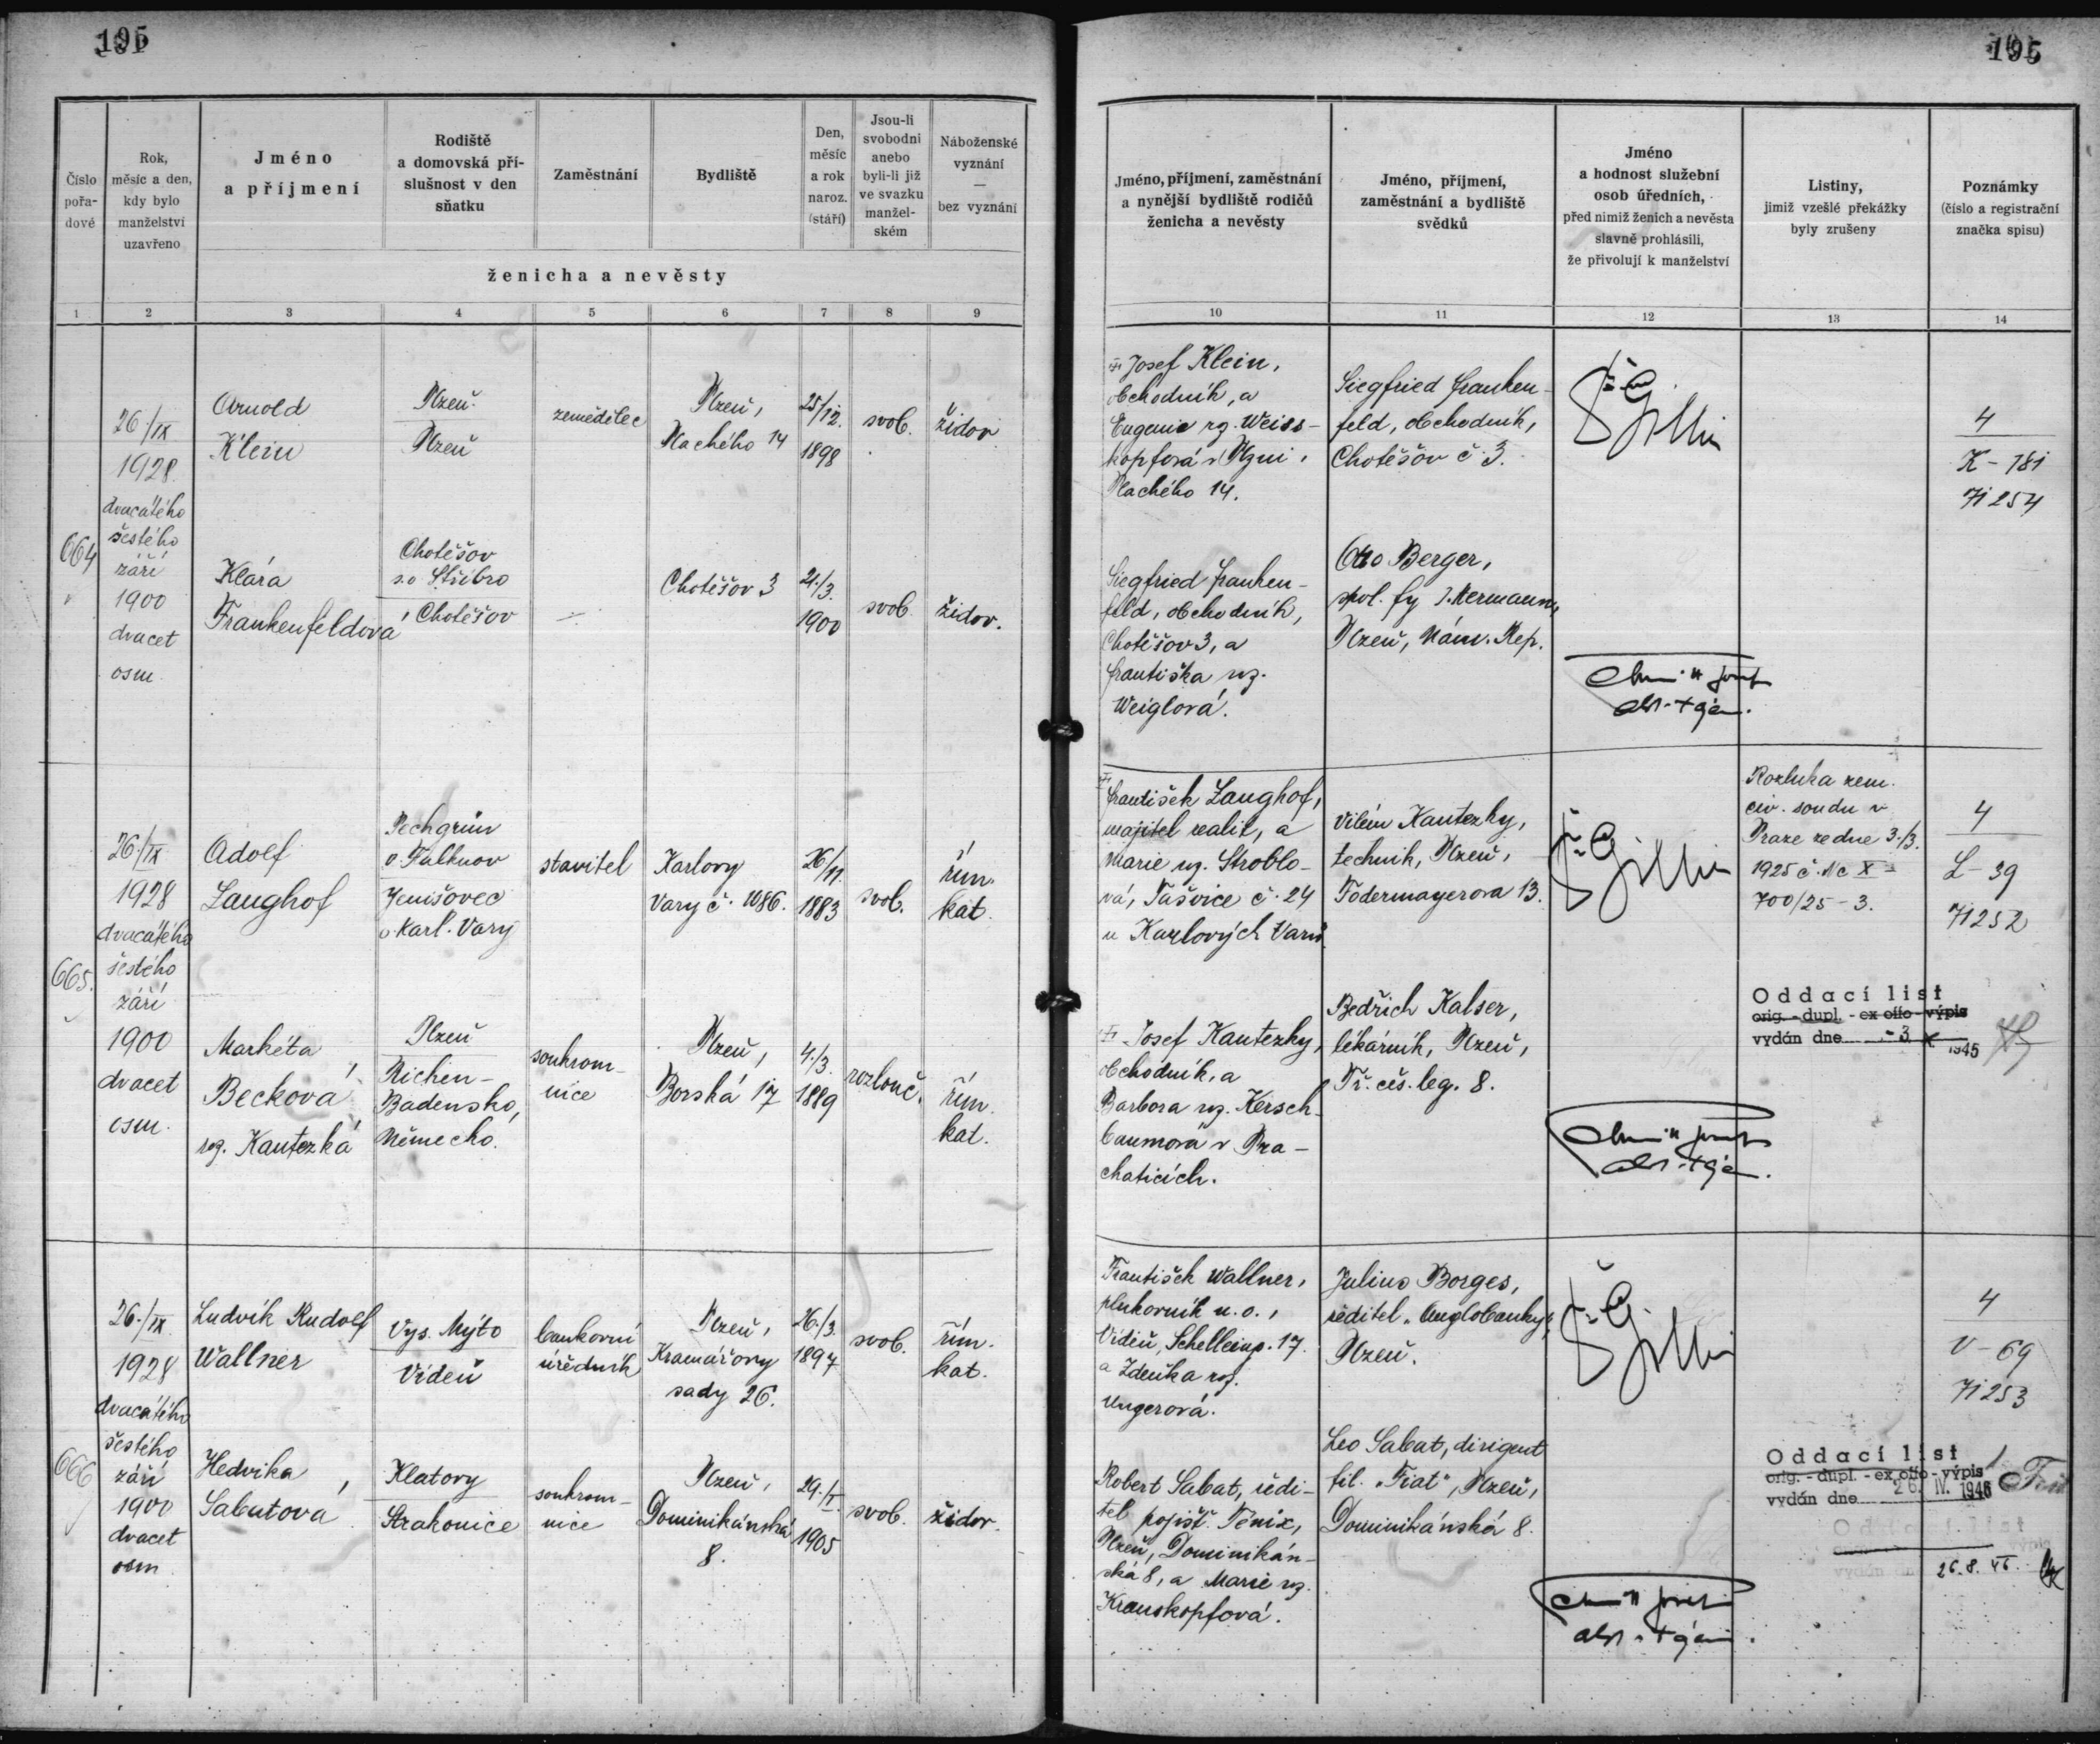 195
195
Číslo
pořa-
dové
Rok,
měsíc a den,
kdy bylo
manželství
uzavřeno
Jméno
a příjmení
Rodiště
a domovská pří-
slušnost v den
sňatku
Zaměstnání
Bydliště
Den,
měsíc
a rok
naroz.
(stáří)
Jsou-li
svobodni
anebo
byli-li již
ve svazku
manžel-
ském
Náboženské
vyznání
—
bez vyznání
ženicha a nevěsty
Jméno, příjmení, zaměstnání
a nynější bydliště rodičů
ženicha a nevěsty
Jméno, příjmení,
zaměstnání a bydliště
svědků
Jméno
a hodnost služební
osob úředních,
před nimiž ženich a nevěsta
slavně prohlásili,
že přivolují k manželství
Listiny,
jimiž vzešlé překážky
byly zrušeny
Poznámky
(číslo a registrační
značka spisu)
1 2 3 4 5 6 7 8 9
10 11 12 13 14
664
26/IX
1928
dvacátého
šestého
září
1900
dvacet
osm
Arnold
Klein
Plzeň
Plzeň
zemědělec
Plzeň,
Plachého 14
25/12.
1898
svob.
židov
Klára
Frankenfeldová
Chotěšov
s.o Stříbro
Chotěšov
—
Chotěšov 3
21./3.
1900
svob
židov.
Josef Klein,
obchodník, a
Eugenie rz. Weiss-
kopfová v Plzni,
Plachého 14.
Siegfried Franken-
feld, obchodník,
Chotěšov 3, a
Františka rz.
Weiglová.
Siegfried Franken-
feld, obchodník,
Chotěšov č 3.
Otto Berger,
spol. fy J. Hermann,
Plzeň, Nám. Rep.
4
K-181
71254
665.
26./IX
1928
dvacátého
šestého
září
1900
dvacet
osm.
Adolf
Langhof
Pechgrün
o Falknov
Jenišovec
o Karl. Vary
stavitel
Karlovy
Vary č. 1086.
26/11.
1883
svob.
řím.
kat.
Markéta
Becková
rz. Kautezká
Plzeň
Richen-
Badensko,
Německo.
soukrom-
nice
Plzeň,
Borská 17
4./3.
1889
rozlouč.
řím.
kat.
František Langhof,
majitel realit, a
Marie rz. Stroblo-
vá, Tašovice č. 24
u Karlových Varů
Josef Kautezky,
obchodník, a
Barbora rz. Kersch-
baumová v Pra-
chaticích.
Vilém Kautezky,
technik, Plzeň,
Fodermayerova 13.
Bedřich Kalser,
lékárník, Plzeň,
Tř. čes. leg. 8.
Rozluka zem.
civ. soudu v
Praze ze dne 3./3.
1925 č. Nc X-
700/25-3.
4
L-39
71252
Oddací list
orig. - dupl. - ex offo - výpis
vydán dne -3. X 1945
666
26./IX.
1928
dvacátého
šestého
září
1900
dvacet
osm
Ludvík Rudolf
Wallner
Vys. Mýto
Vídeň
bankovní
úředník
Plzeň,
Kramářovy
sady 26.
26./3.
1897
svob.
řím.
kat.
Hedvika
Sabatová
Klatovy
Strakonice
soukrom-
nice
Plzeň,
Dominikánská
8.
29./I.
1905
svob.
židov.
František Wallner,
plukovník v. o.,
Vídeň, Schelleing. 17.
a Zdeňka roz.
Ungerová.
Robert Sabat, ředi-
tel pojišť. Fénix,
Plzeň, Dominikán-
ská 8, a Marie rz.
Krauskopfová.
Julius Borges,
ředitel „Anglobanky",
Plzeň.
Leo Sabat, dirigent
fil. „Fiat", Plzeň,
Dominikánská 8.
4
V-69
71253
Oddací list
orig. - dupl. - ex offo - výpis
vydán dne 26. IV. 1946
Oddací list
vydán dne 26.8.46.